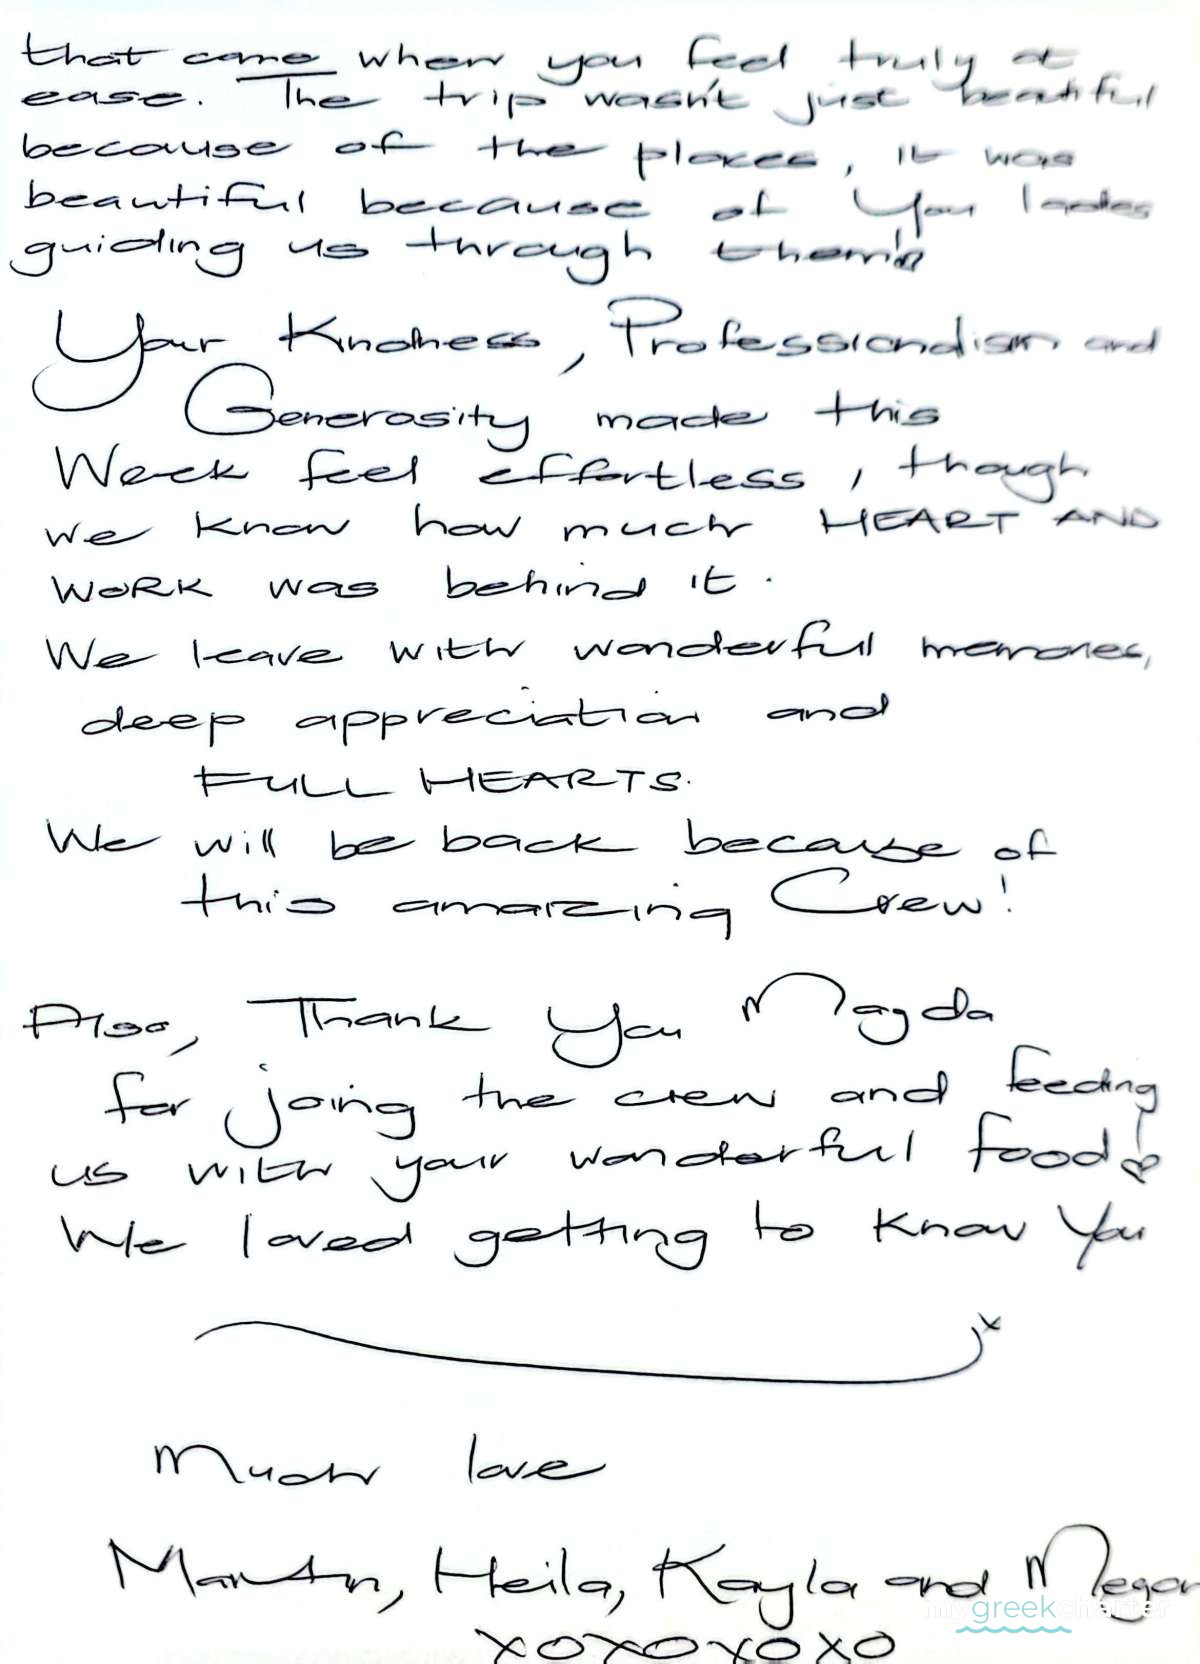 that come when you feel truly at
ease. The trip wasn't just beautiful
because of the places, it was
beautiful because of You ladies
guiding us through them!
Your Kindness, Professionalism and
Generosity made this
Week feel effortless, though
we know how much HEART AND
WORK was behind it.
We leave with wonderful memories,
deep appreciation and
FULL HEARTS.
We will be back because of
this amazing Crew!
Also, Thank You Magda
for joing the crew and feeding
us with your wonderful food!
We loved getting to know You
x
Much love
Martin, Heila, Kayla and Megan
mygreekcharter
XOXOXOXO